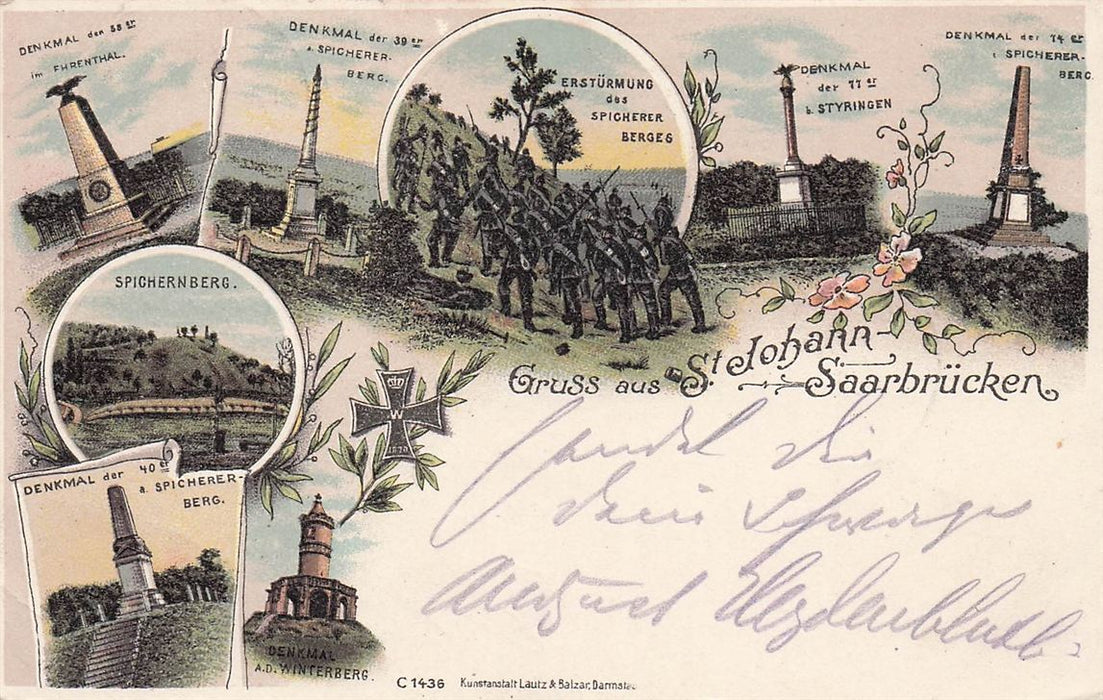 DENKMAL den 55er
im EHRENTHAL.
DENKMAL der 39er
a. SPICHERER-
BERG.
ERSTÜRMUNG
des
SPICHERER
BERGES
DENKMAL
der 77er
b. STYRINGEN
DENKMAL der 74er
SPICHERER-
BERG.
SPICHERNBERG.
Gruss aus St Johann-
Saarbrücken.
W
1870
DENKMAL der 40er
a. SPICHERER-
BERG.
sendet dir
dein Schwager
August
DENKMAL
A.D. WINTERBERG.
C 1436 Kunstanstalt Lautz & Balzar, Darmsta